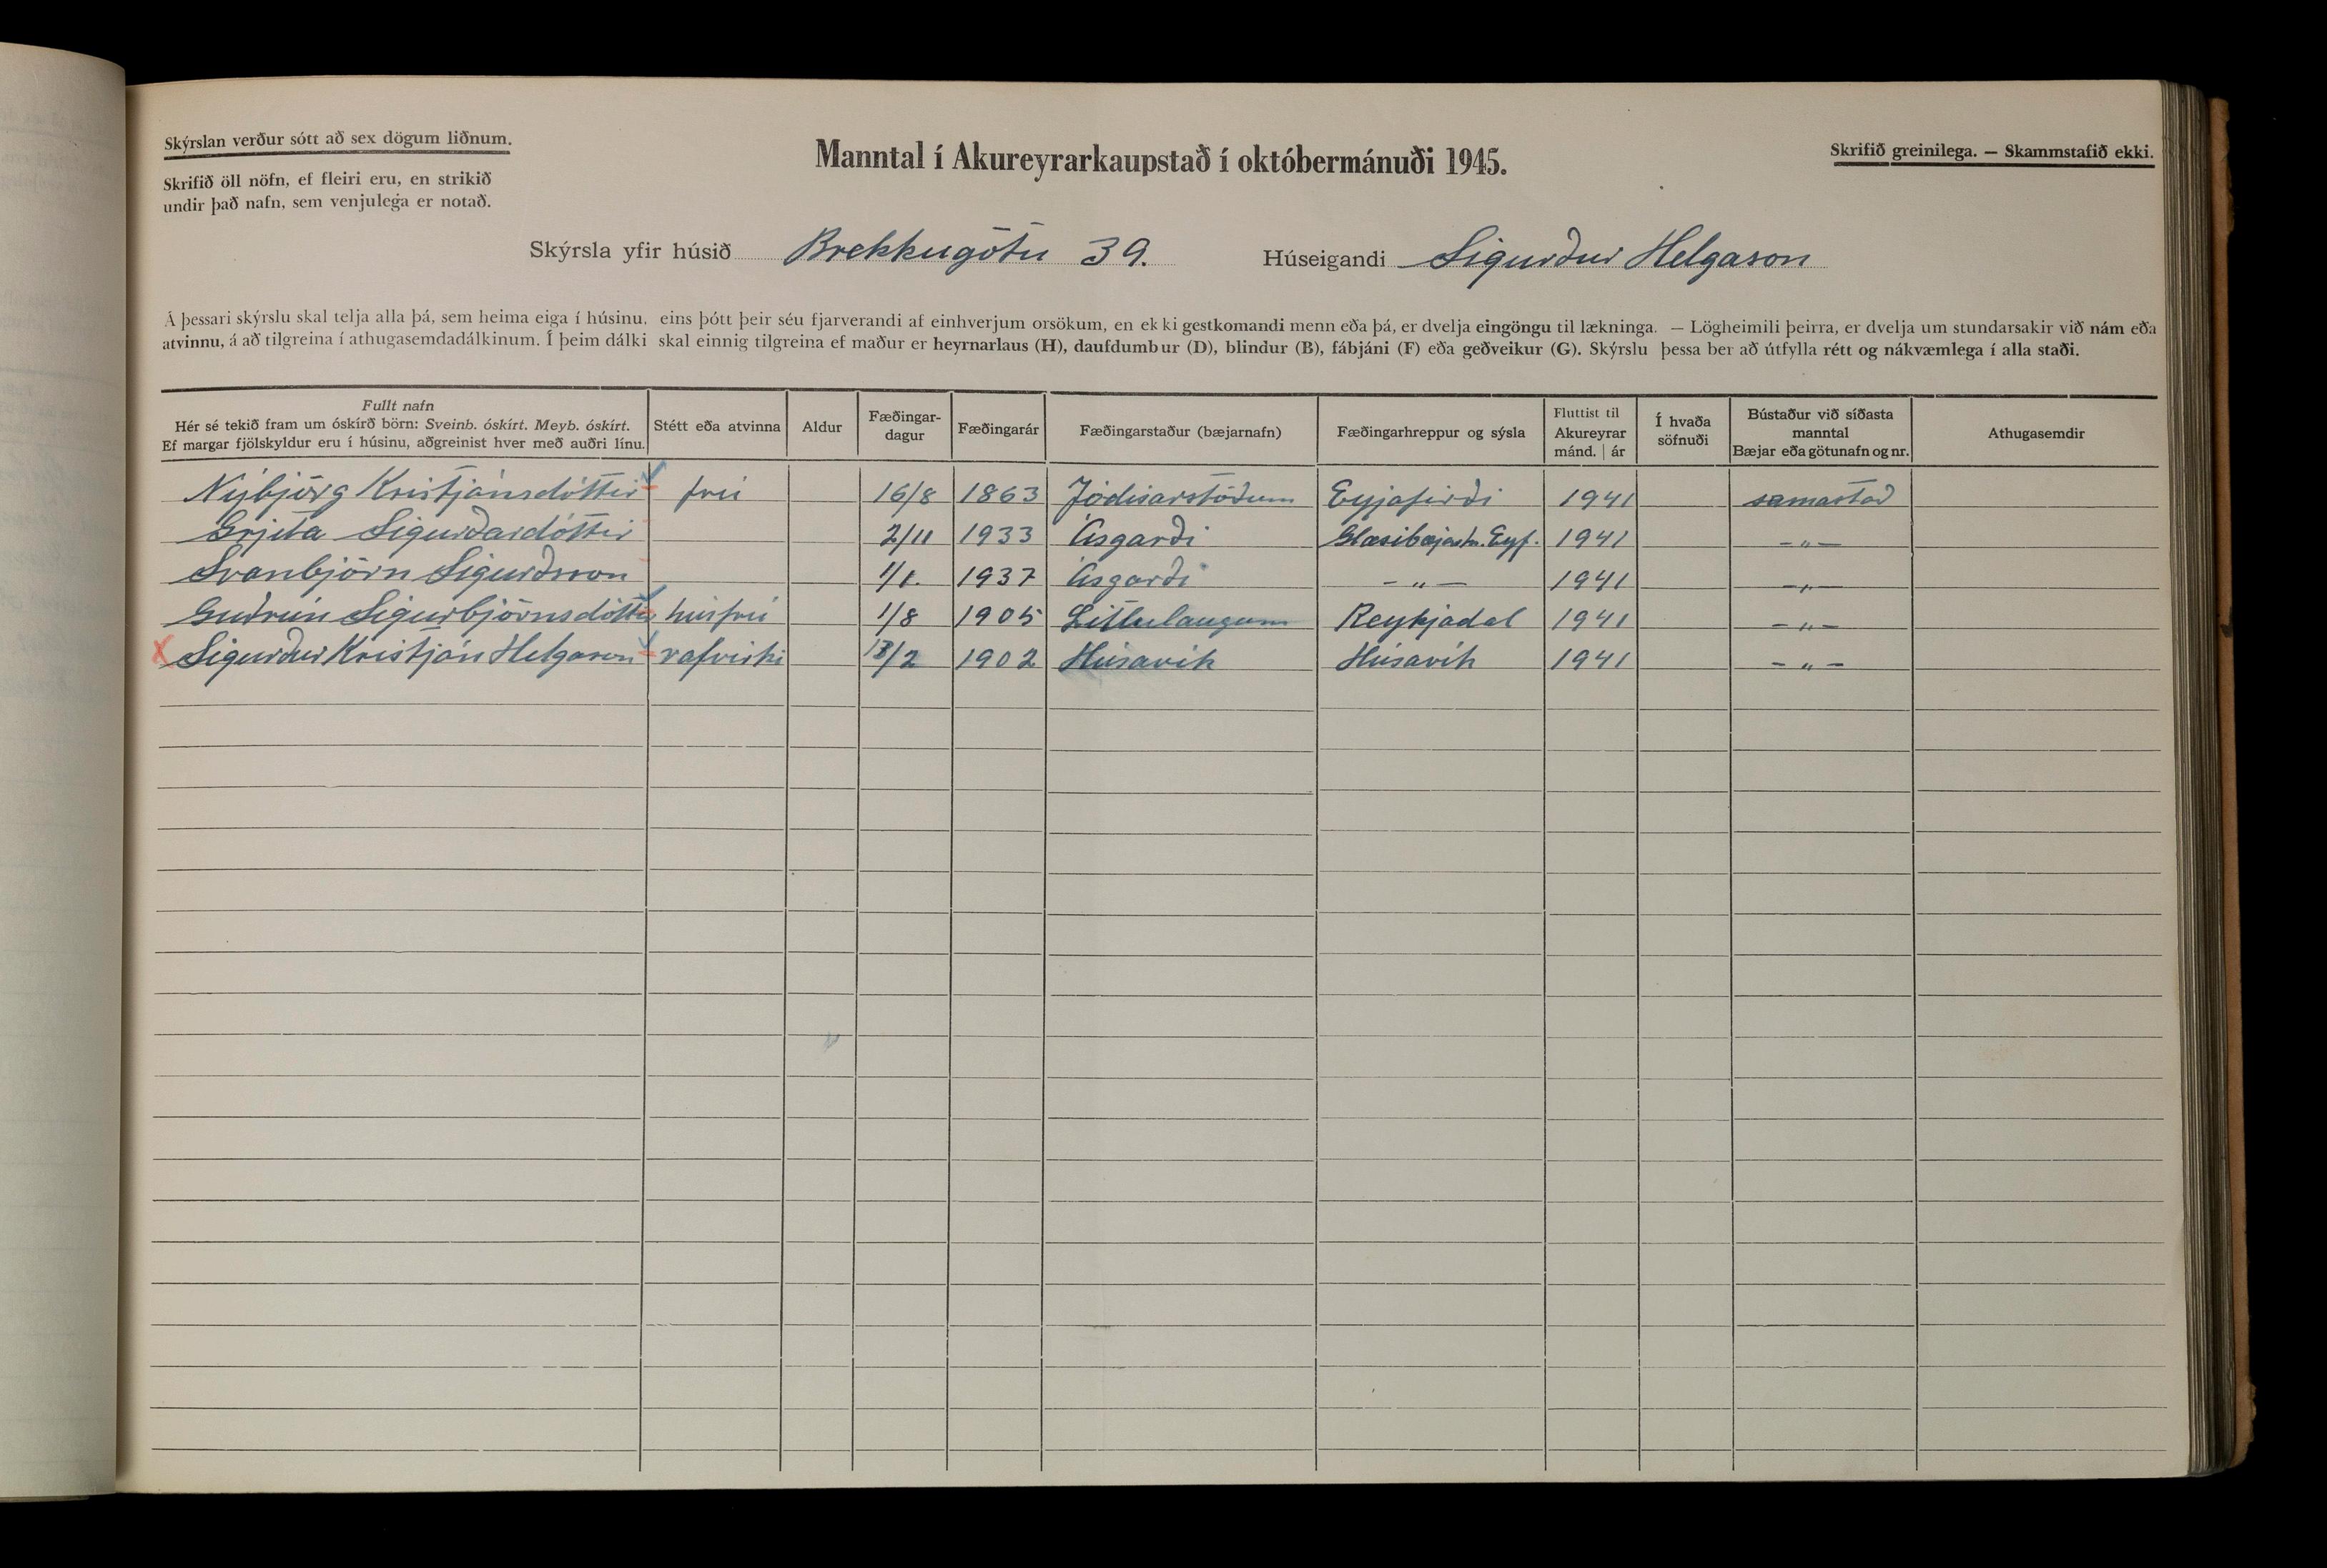 Skýrslan verður sótt að sex dögum liðnum.
Skrifið öll nöfn, ef fleiri eru, en strikið
undir það nafn, sem venjulega er notað.
Manntal í Akureyrarkaupstað í októbermánuði 1945.
Skrifið greinilega. — Skammstafið ekki.
Skýrsla yfir húsið Brekkugötu 39. Húseigandi Sigurður Helgason
Á þessari skýrslu skal telja alla þá, sem heima eiga í húsinu, eins þótt þeir séu fjarverandi af einhverjum orsökum, en ekki gestkomandi menn eða þá, er dvelja eingöngu til lækninga. — Lögheimili þeirra, er dvelja um stundarsakir við nám eða
atvinnu, á að tilgreina í athugasemdadálkinum. Í þeim dálki skal einnig tilgreina ef maður er heyrnarlaus (H), daufdumbur (D), blindur (B), fábjáni (F) eða geðveikur (G). Skýrslu þessa ber að útfylla rétt og nákvæmlega í alla staði.
Fullt nafn
Hér sé tekið fram um óskírð börn: Sveinb. óskírt. Meyb. óskírt.
Ef margar fjölskyldur eru í húsinu, aðgreinist hver með auðri línu.
Stétt eða atvinna
Aldur
Fæðingar-
dagur
Fæðingarár
Fæðingarstaður (bæjarnafn)
Fæðingarhreppur og sýsla
Fluttist til
Akureyrar
mánd. | ár
Í hvaða
söfnuði
Bústaður við síðasta
manntal
Bæjar eða götunafn og nr.
Athugasemdir
Nýbjörg Kristjánsdóttir frú 16/8 1863 Jódísarstöðum Eyjafirði 1941 samastað
Grjeta Sigurðardóttir 2/11 1933 Ásgarði Glæsibæjarh. Eyf. 1941 — „ —
Svanbjörn Sigurðsson 1/1. 1937 Ásgarði — „ — 1941 — „ —
Guðrún Sigurbjörnsdóttir húsfrú 1/8 1905 Litlulaugum Reykjadal 1941 — „ —
X Sigurður Kristján Helgason rafvirki 13/2 1902 Húsavík Húsavík 1941 — „ —